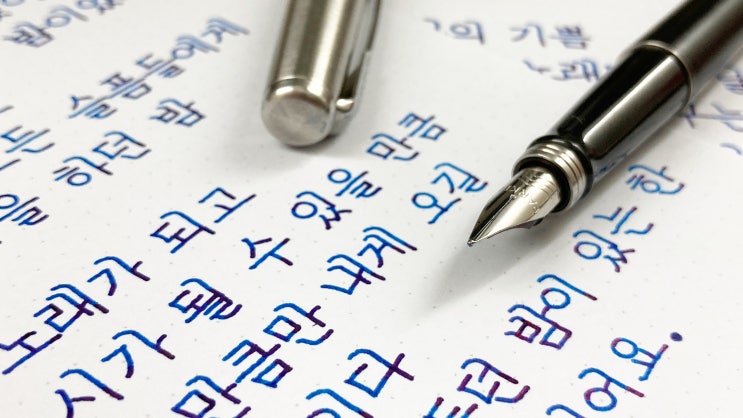 밤이었
슬픔들에게
을 하던 밤
노래가 되고
시가 될 수 있을 만큼
만큼만 내게 오길
이다
던 밤이 있는 한
어요.
의 기쁨
노래